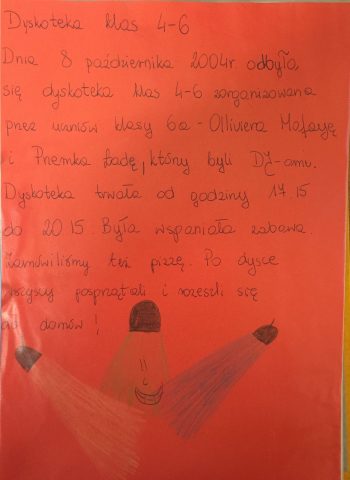 Dyskoteka klas 4-6
Dnia 8 października 2004r. odbyła
się dyskoteka klas 4-6 zorganizowana
przez uczniów klasy 6a - Olliviera
i Przemka Ładę, który byli DJ-ami.
Dyskoteka trwała od godziny 17 15
do 20 15. Była wspaniała zabawa.
Zamówiliśmy też pizzę. Po dysce
wszyscy posprzątali i rozeszli się
do domów!